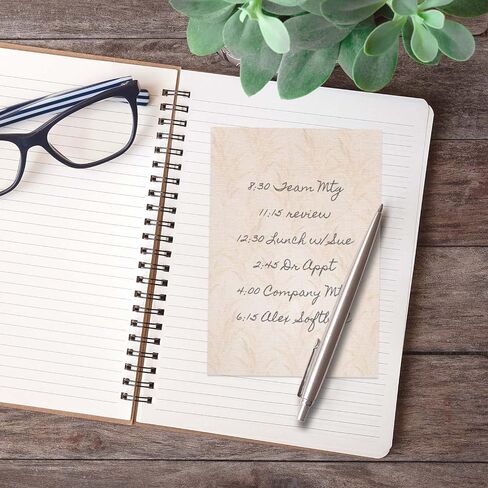 8:30 Team Mtg
11:15 review
12:30 Lunch w/Sue
2:45 Dr Appt
4:00 Company
6:15 Alex